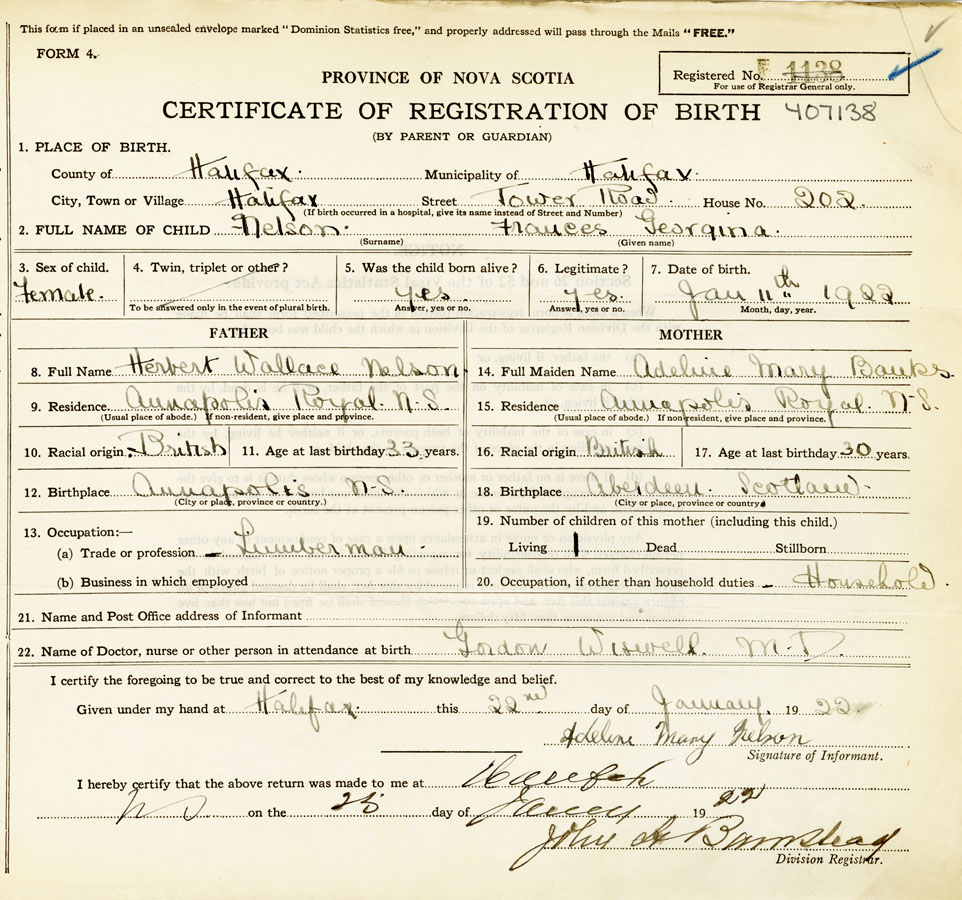 This form if placed in an unsealed envelope marked "Dominion Statistics free," and properly addressed will pass through the Mails "FREE."
FORM 4.
Registered No. 1138
For use of Registrar General only.
PROVINCE OF NOVA SCOTIA
CERTIFICATE OF REGISTRATION OF BIRTH 407138
(BY PARENT OR GUARDIAN)
1. PLACE OF BIRTH.
County of Halifax. Municipality of Halifax.
City, Town or Village Halifax Street Tower Road. House No. 202.
(If birth occurred in a hospital, give its name instead of Street and Number)
2. FULL NAME OF CHILD Nelson. Frances Georgina.
(Surname) (Given name)
3. Sex of child. 4. Twin, triplet or other? 5. Was the child born alive? 6. Legitimate? 7. Date of birth.
Female. yes. yes. Jan 11th 1922
To be answered only in the event of plural birth. Answer, yes or no. Answer, yes or no. Month, day, year.
FATHER MOTHER
8. Full Name Herbert Wallace Nelson 14. Full Maiden Name Adeline Mary Banks.
9. Residence. Annapolis Royal. N-S. 15. Residence Annapolis Royal. N-S.
(Usual place of abode.) If non-resident, give place and province. (Usual place of abode.) If non-resident, give place and province.
10. Racial origin. British 11. Age at last birthday 33 years. 16. Racial origin British 17. Age at last birthday 30 years.
12. Birthplace Annapolis N-S. 18. Birthplace Aberdeen. Scotland-
(City or place, province or country.) (City or place, province or country.
13. Occupation:— 19. Number of children of this mother (including this child.)
(a) Trade or profession – Lumberman - Living 1 Dead Stillborn
(b) Business in which employed 20. Occupation, if other than household duties – Household.
21. Name and Post Office address of Informant
22. Name of Doctor, nurse or other person in attendance at birth Gordon Wiswell. M-D.
I certify the foregoing to be true and correct to the best of my knowledge and belief.
Given under my hand at Halifax. this 22nd day of January. 1922
Adeline Mary Nelson
Signature of Informant.
I hereby certify that the above return was made to me at Halifax
N S on the 25 day of 1922
John A Barnstead
Division Registrar.